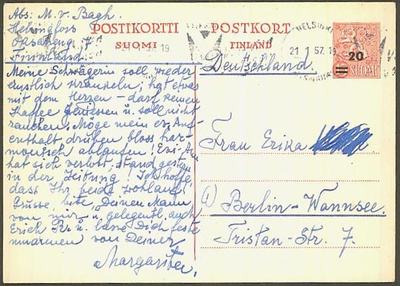 Abs: M. v. Bagh.
Helsingfors
7.
Finnland.
POSTIKORTTI
SUOMI
POSTKORT
FINLAND
HELSINKI
21.1.57.19
20
SUOMI
Deutschland.
Meine Schwägerin soll wieder
kränkeln, hat etwas
mit dem Herzen - darf keinen
Kaffee geniessen u. soll nicht
rauchen. Möge mein
enthalt drüben bloss har-
monisch ablaufen.
hat sich verlobt, stand gestern
in der Zeitung! Ich hoffe
dass Ihr beide wohlauf!
Grüsse, bitte, Deinen Mann
von mir u. gelegentl. auch
Erich u. lass Dich feste
umarmen von Deiner
Margarita.
Frau Erika
(1) Berlin-Wannsee.
Tristan-Str. 7.